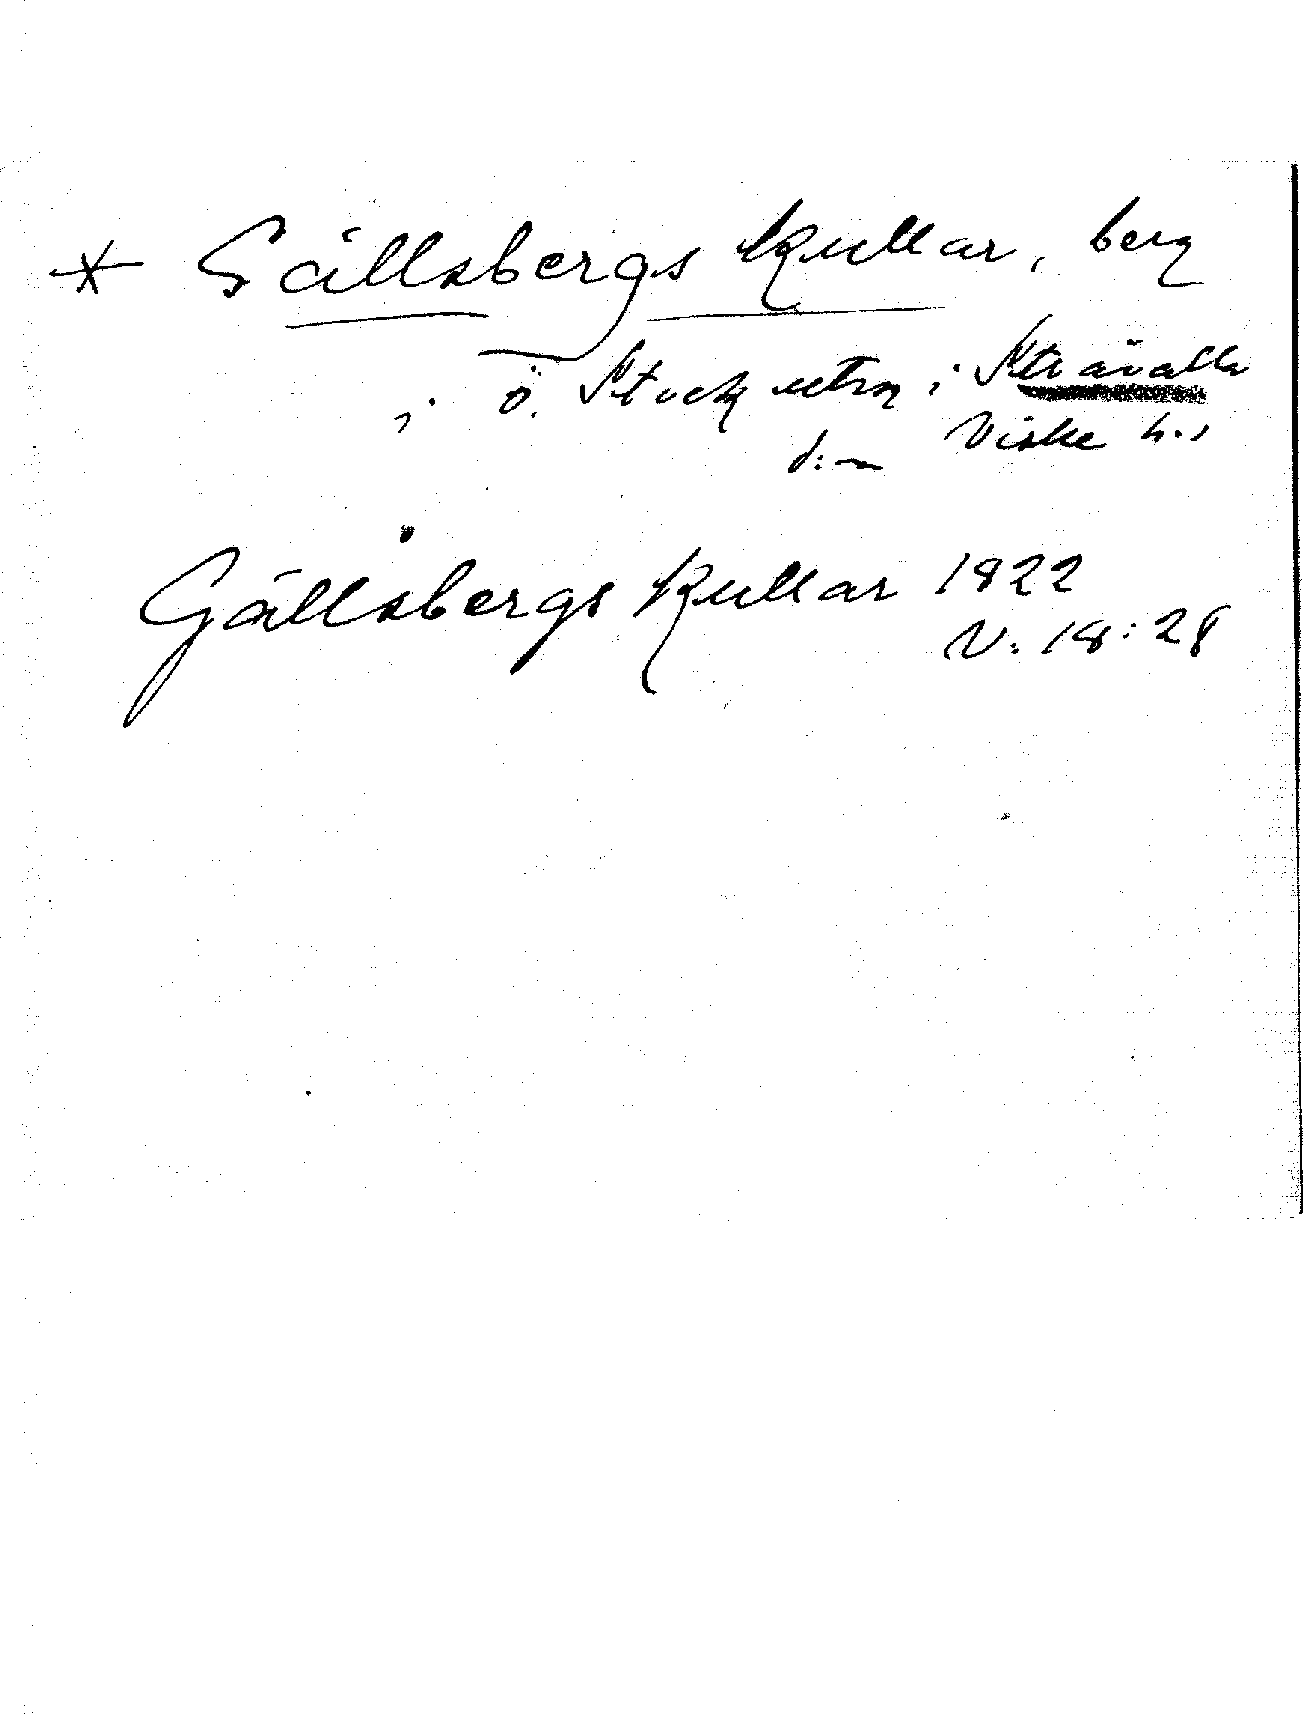 * Gällsbergs kullar, berg
i ö. Stock utm i Stråvalla
d:n Viske h.,
Gällsbergs kullar 1822
V. 18:28